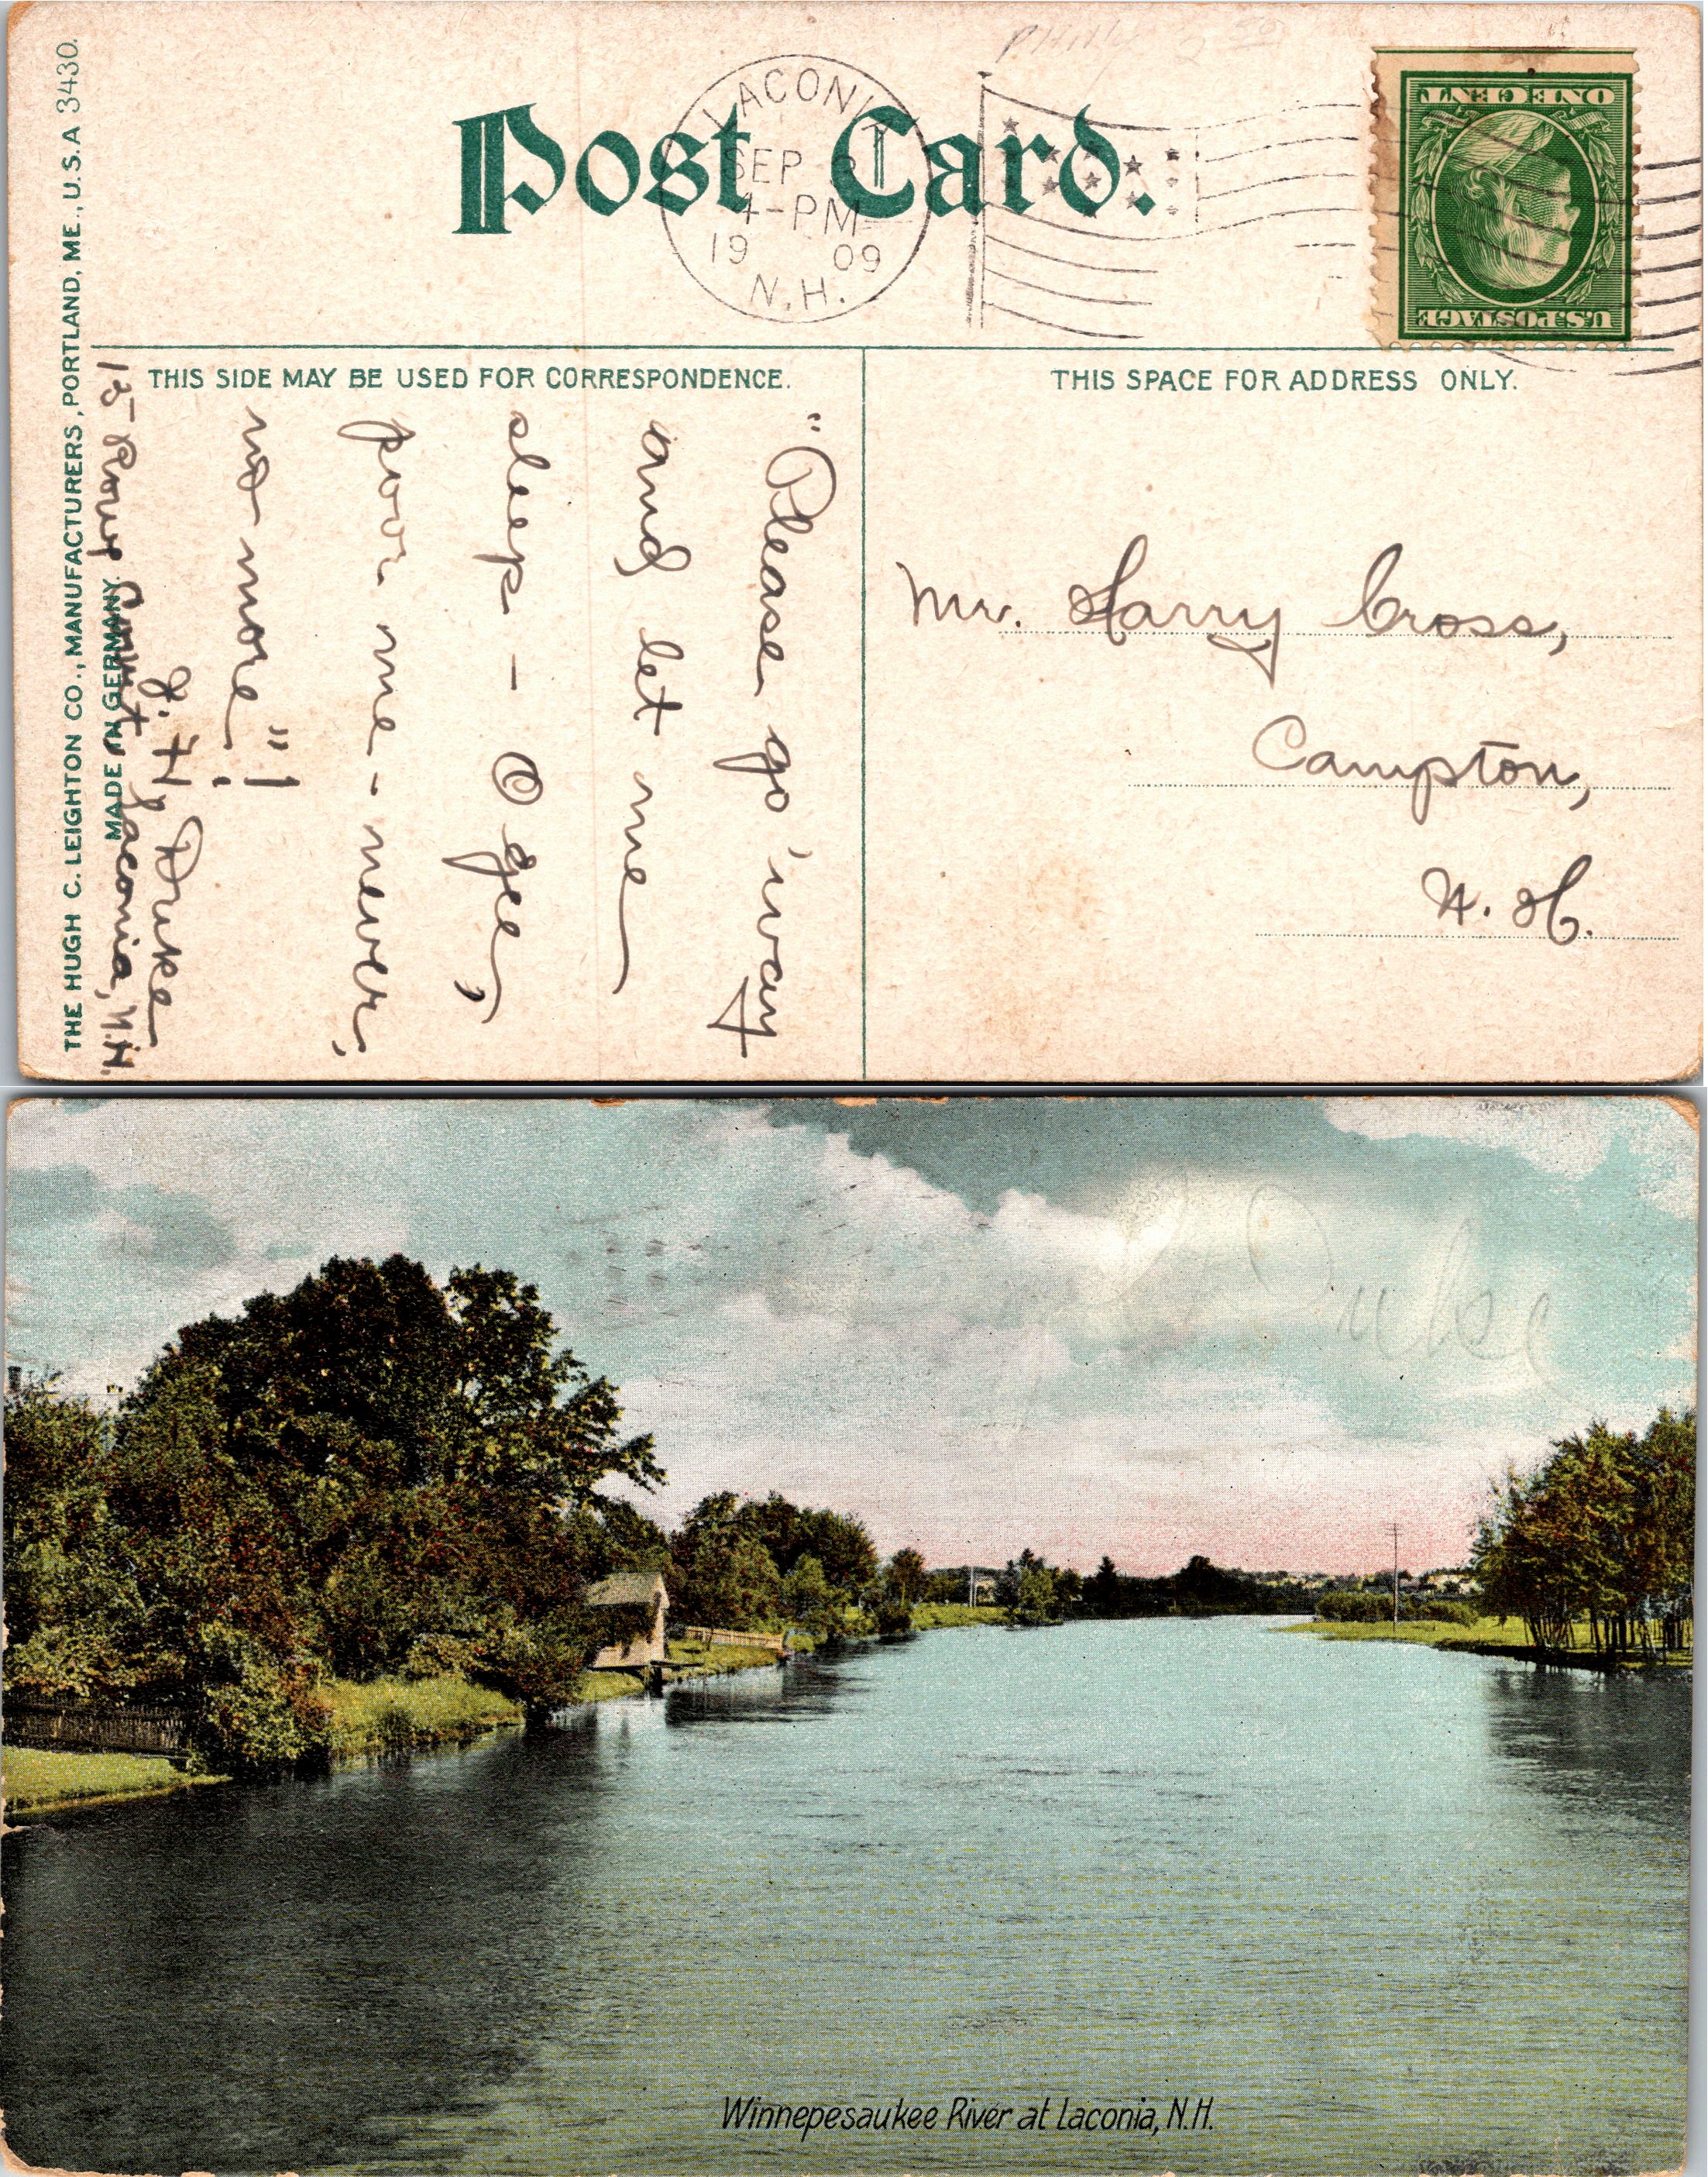 Post Card.
LACONIA
SEP
4-PM
19 09
N.H.
ONE CENT
U.S. POSTAGE
THIS SIDE MAY BE USED FOR CORRESPONDENCE.
THIS SPACE FOR ADDRESS ONLY.
"Please go 'way
and let me
sleep - O gee,
poor me - never,
no more"!
J. H. Duke
15 Court, Laconia, N.H.
Mr. Harry Cross,
Campton,
N. H.
THE HUGH C. LEIGHTON CO., MANUFACTURERS, PORTLAND, ME., U.S.A 3430.
MADE IN GERMANY.
Duke
Winnepesaukee River at Laconia, N.H.